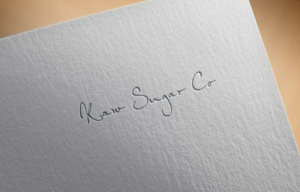 Raw Sugar Co